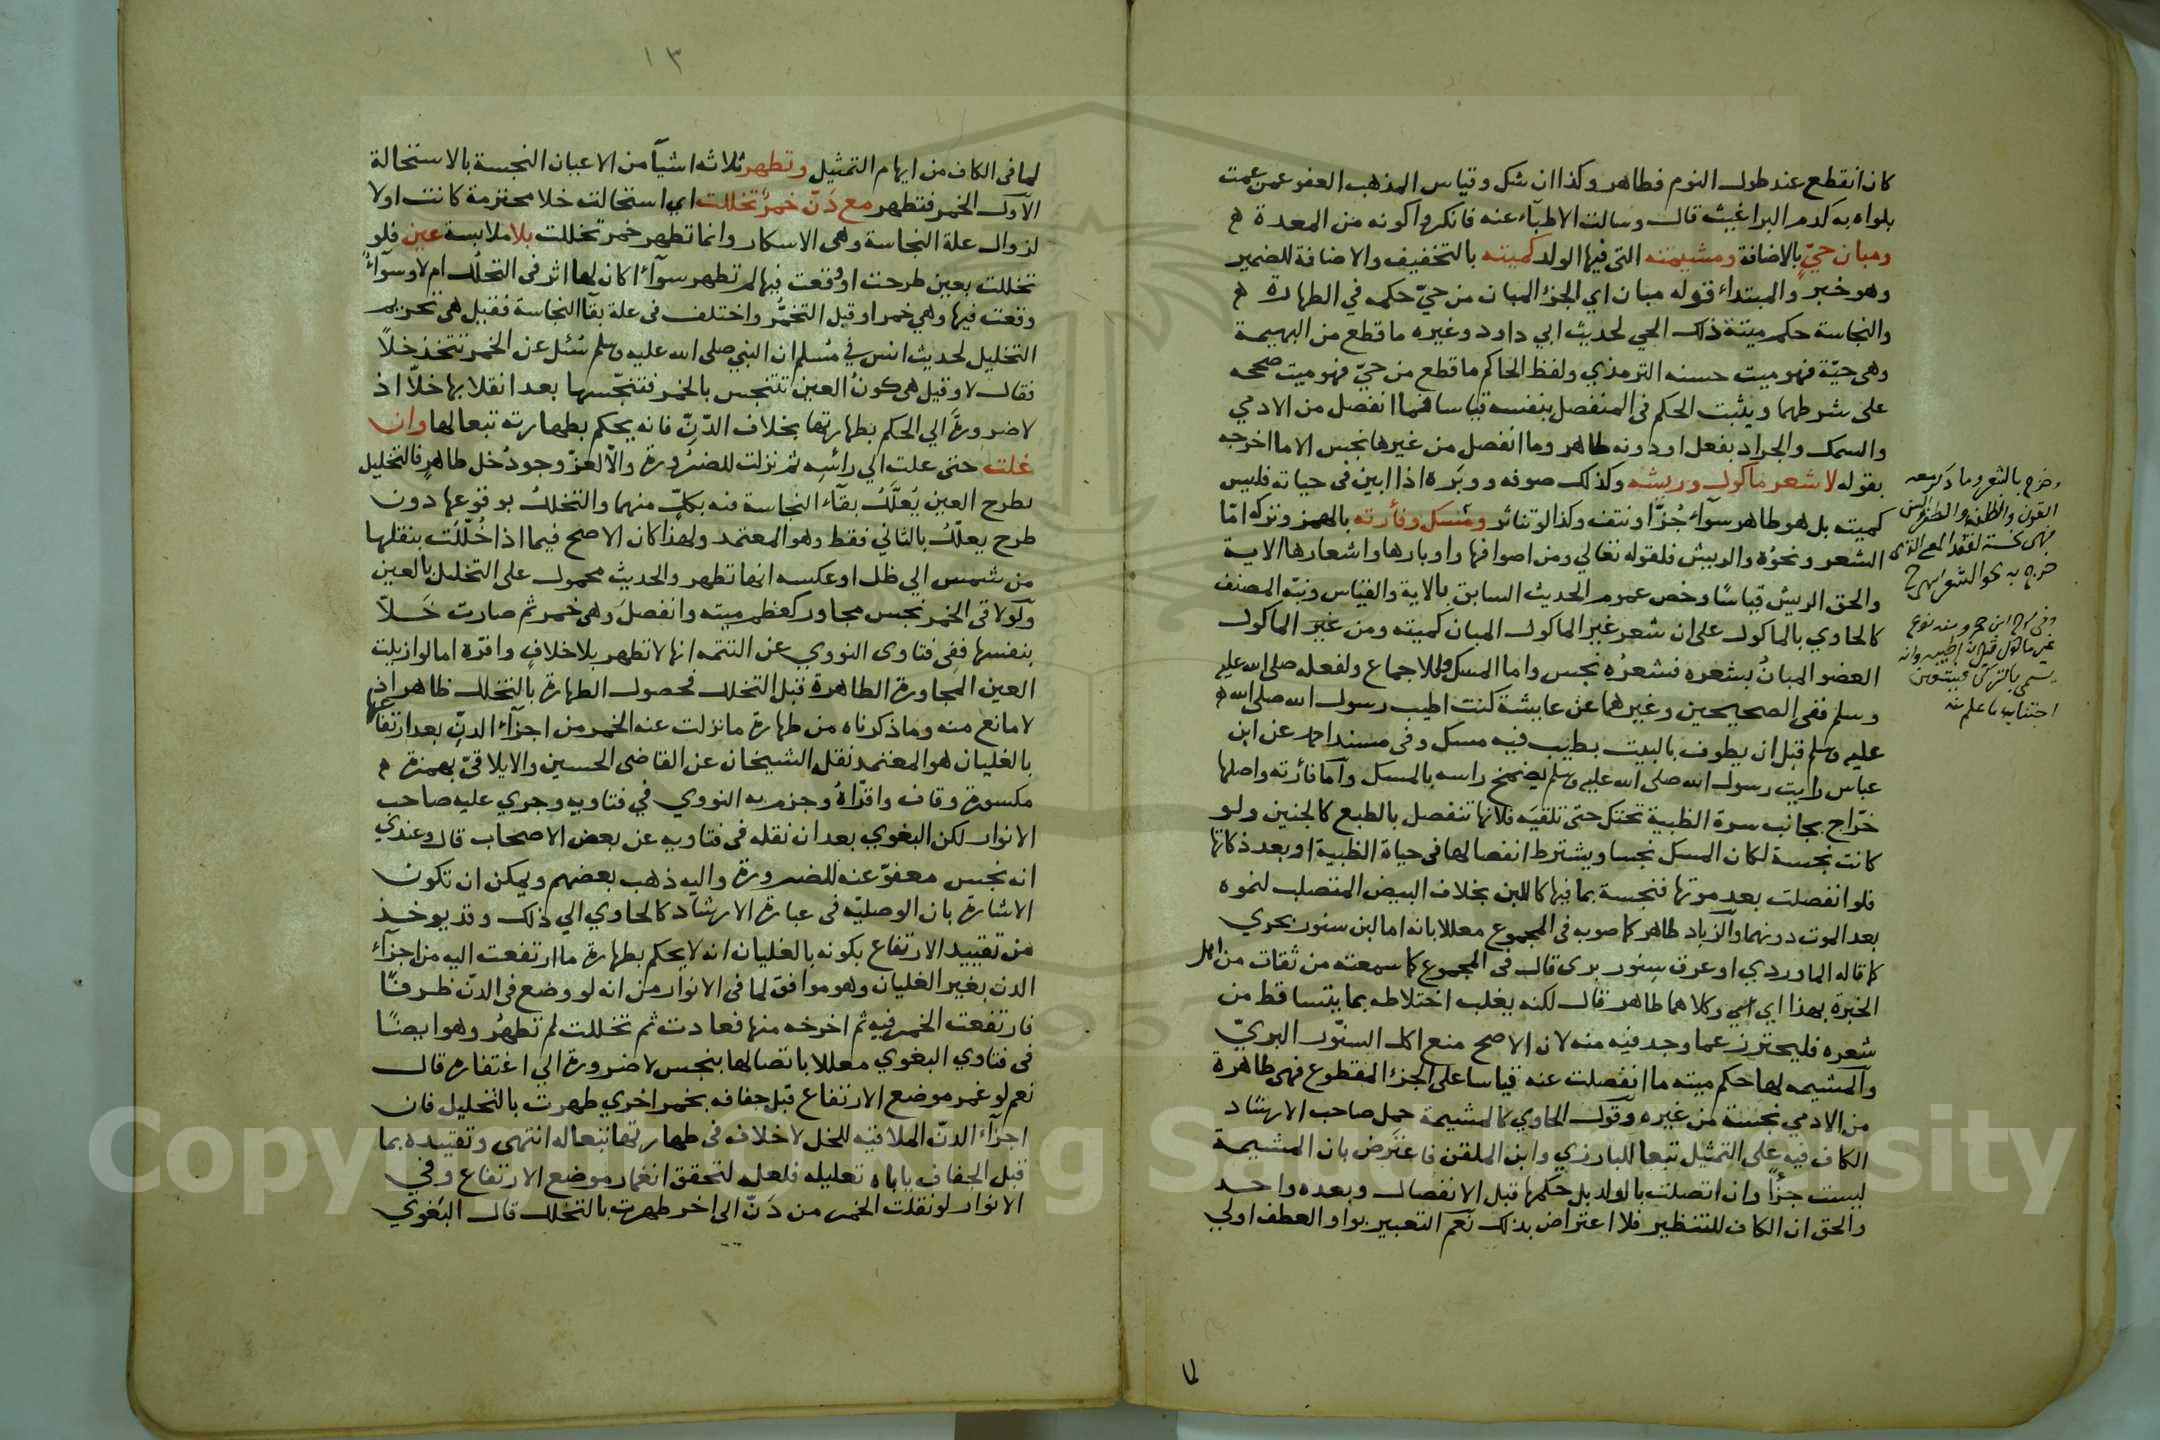 كان انقطع عند طول النوم فطاهر وكذا ان شك وقياس المذهب العفو عمن عمت
بلواه به كدم البراغيث قال وسالت الاطباء عنه فانكروا كونه من المعدة
ومبان حيّ بالاضافة ومشيمته التى فيها الولد كميته بالتخفيف والاضافة للضمير
وهو خبر والمبتداء قوله مبان اي الجزء المبان من حيّ حكمه في الطهارة
والنجاسة حكم ميتة ذلك الحي لحديث ابي داود وغيره ما قطع من البهيمة
وهى حيّة فهو ميت حسنه الترمذي ولفظ الحاكم ما قطع من حيّ فهو ميت صححه
على شرطهما ويثبت الحكم فى المنفصل بنفسه قياسا فما انفصل من الادمي
والسمك والجراد بفعل او دونه طاهر وما انفصل من غيرها نجس الا ما اخرجه
بقوله لا شعر ماكول وريشه وكذلك صوفه ووبَره اذا ابين فى حياته فليس
كميته بل هو طاهر سوآء جُزّ او نتف وكذا لو تناثر ومسك وفأرته بالهمز وتركه امّا
الشعر ونحوُه والريش فلقوله تعالي ومن اصوافها واوبارها واشعارها الاية
والحق الريش قياسًا وخص عموم الحديث السابق بالاية والقياس ونبّه المصنف
كالحاوي بالماكول على ان شعر غير الماكول المبان كميته ومن غير الماكول
العضو المبانُ بشعره فشعرُه نجس واما المسك فللاجماع ولفعله صلى الله عليه
وسلم ففى الصحيحين وغيرهما عن عايشة كنت اطيب رسول الله صلى الله
عليه وسلم قبل ان يطوف بالبيت بطيب فيه مسك وفى مسند احمد عن ابن
عباس رايت رسول الله صلى الله عليه وسلم يضمخ راسه بالمسك وآما فأرته واصلها
خرّاج بجانب سرة الظبية تحتك حتى تلقيَه فلانها تنفصل بالطبع كالجنين ولو
كانت نجسة لكان المسك نجسا ويشترط انفصالها فى حياة الظبية او بعد ذكاتها
فلو انفصلت بعد موتها فنجسة بما فيها كاللبن بخلاف البيض المتصلب لنموه
بعد الموت دونهما والزباد طاهر كما صوبه فى المجموع معللا بانه اما لبن سنور بحري
كما قاله الماوردي او عرق سنور برى قال فى المجموع كما سمعته من ثقات من اهل
الخبرة بهذا اي وكلاهما طاهر قال لكنه يغلب اختلاطه بما يتساقط من
شعره فليحترز عما وجد فيه منه لان الاصح منع اكل السنّور البريّ
وآلمشيمه لها حكم ميته ما انفصلت عنه قياسا على الجزء المقطوع فهى طاهرة
من الادمي نجسة من غيره وقول الحاوي كالمشيمة حمل صاحب الارشاد
الكاف فيه على التمثيل تبعا للبارزي وابن الملقن فاعترض بان المشيمة
ليست جزأً وان اتصلت بالولد بل حكمها قبل الانفصال وبعده واحد
والحق ان الكاف للتنظير فلا اعتراض بذلك نعم التعبير بواو العطف اولي
وخرج بالشعر وما ذكر معه
القرن والظلف والظفر والسن
فهى نجسة لفقد المعنى الذى
خرج به نحو الشعر
وفى ابن حجر ومنه نوع
غير ماكول
يسمى بالتركى
اجتناب ما علم منه
١٣
لما فى الكاف من ايهام التمثيل وتطهر ثلاثه اشيآ من الاعيان النجسة بالاستحالة
الآول الخمر فتطهر مع دَنّ خمرٌ تخللت اي استحالت خلا محترمة كانت اولا
لزوال علة النجاسة وهى الاسكار وانما تطهر خمر تخللت بلا ملابسة عين فلو
تخللت بعين طرحت او وُقعت فيها لم تطهر سوآءٌ اكان لها اثر فى التخلُّل ام لا وسوآءٌ
وقعت فيها وهي خمر او قبل التخمُّر واختلف فى علة بقآ النجاسة فقيل هى تحريم
التخليل لحديث انس في مُسلم ان النبي صلى الله عليه وسلم سُئل عن الخمر تتخذ خلاً
فقال لا وقيل هى كونُ العين تتنجس بالخمر فتنجّسها بعد انقلابها خلّا اذ
لا ضرورةَ الي الحكم بطهارتها بخلاف الدّنّ فانه يحكم بطهارته تبعا لها وان
غلت حتى علت الي رائسِه ثم نزلت للضرُورة والآ لعزّ وجودُ خل طاهرٍ فالتخليل
بطرح العين يُعلَّلُ بقآء النجاسة فيه بكلّ منهما والتخللُ بوقوعها دون
طرح يعلّلُ بالثاني فقط وهو المعتمد ولهذا كان الاصح فيما اذا خُلّلَت بنقلها
من شمس الي ظل او عكسه انها تطهر والحديث محمول على التخليل بالعين
ولو لاقي الخمر نجس مجاور كعظم ميته وانفصلَ وهى خمر ثم صارت خَلاّ
بنفسها ففى فتاوى النووي عن التتمه انها لا تطهر بلا خلاف واقرّه اما لو ازيلت
العين المجاورة الطاهرة قبل التخلل فحصول الطهارة بالتخلل ظاهر اذ
لا مانع منه وما ذكرناه من طهارة ما نزلت عنه الخمر من اجزآء الدنّ بعد ارتفاعها
بالغليان هو المعتمد نقله الشيخان عن القاضى الحسين والايلاقىّ بهمزة
مكسورة وقاف واقرّاهُ وجزم به النووي في فتاويه وجري عليه صاحب
الانوار لكن البغوي بعد ان نقله فى فتاويه عن بعض الاصحاب قال وعندي
انه نجس معفوّ عنه للضرورة واليه ذهب بعضهم ويمكن ان تكون
الاشارة بان الوصليّه فى عبارة الارشاد كالحاوي الي ذلك وقد يوخذ
من تقييد الارتفاع بكونه بالغليان انه لا يحكم بطهارة ما ارتفعت اليه من اجزآء
الدن بغير الغليان وهو موافق لما فى الانوار من انه لو وضع فى الدنّ ظرفًا
فارتفعت الخمر فيه ثم اخرجه منها فعادت ثم تخللت لم تطهرُ وهو ايضًا
فى فتاوي البغوي معللا باتصالها بنجس لا ضرورة الي اغتفاره قال
نعم لو غمر موضع الارتفاع قبل جفافه بخمر اخري طهرت بالتخليل فان
اجزآء الدنّ الملاقيه للخل لا خلاف فى طهارتها تبعا له انتهى وتقييده بما
قبل الجفاف ياباه تعليله فلعله لتحقق انغمار موضع الارتفاع وفى
الانوار لو نقلت الخمر من دَنّ الى اخر طهرت بالتخلل قال البَغوي